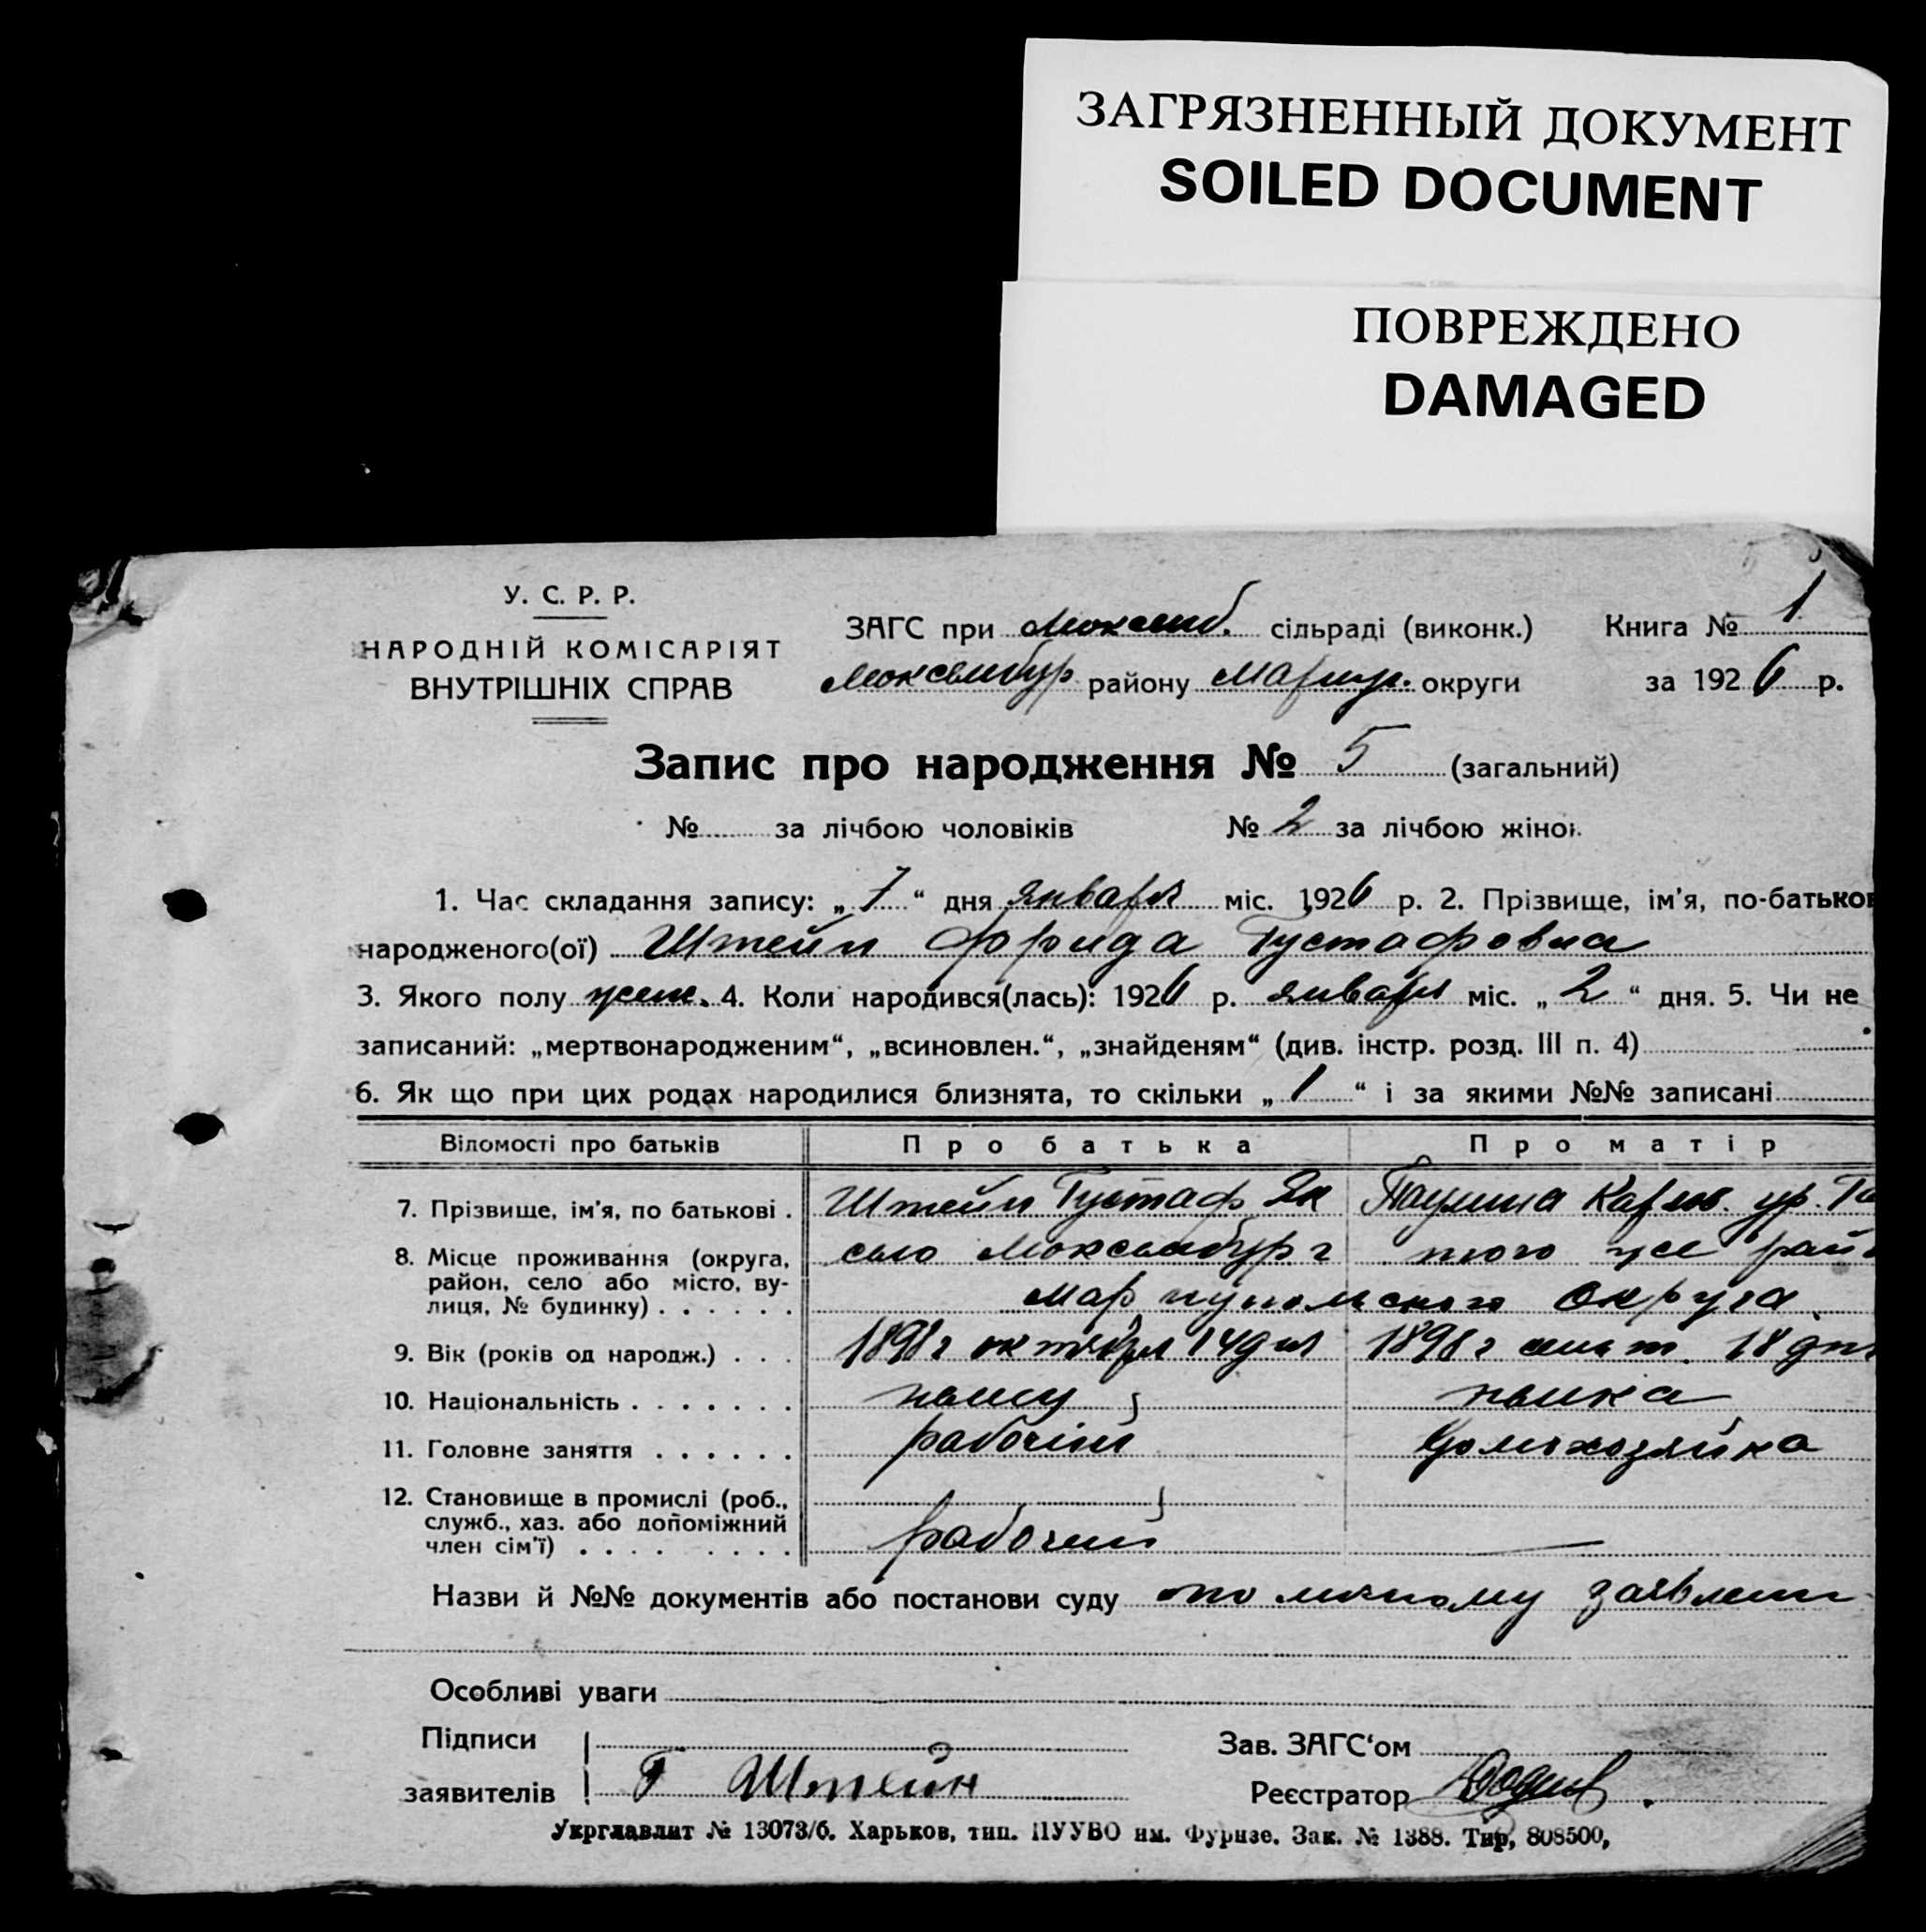 ЗАГРЯЗНЕННЫЙ ДОКУМЕНТ
SOILED DOCUMENT
ПОВРЕЖДЕНО
DAMAGED
У. С. Р. Р.
НАРОДНІЙ КОМІСАРІЯТ
ВНУТРІШНІХ СПРАВ
ЗАГС при Люксемб. сільраді (виконк.)
Люксембур району Мариуп. округи
Книга № 1
за 1926 р.
Запис про народження № 5 (загальний)
№ за лічбою чоловіків № 2 за лічбою жіно
1. Час складання запису: „7“ дня января міс. 1926 р. 2. Прізвище, ім'я, по-батьков
народженого(ої) Штейн Фрида Густафовна
3. Якого полу жен. 4. Коли народився(лась): 1926 р. января міс. „2“ дня. 5. Чи не
записаний: „мертвонародженим“, „всиновлен.“, „знайденям“ (див. інстр. розд. III п. 4)
6. Як що при цих родах народилися близнята, то скільки „1“ і за якими №№ записані
Відомості про батьків Про батька Про матір
7. Прізвище, ім'я, по батькові . Штейн Густаф Як Паулина Карлов. ур.
8. Місце проживання (округа, село Люксембург того же рай
район, село або місто, ву- Мариупольского округа
лиця, № будинку) . . . . . .
9. Вік (років од народж.) . . . 1898 г октября 14 дня 1898 г 18 дня
10. Національність . . . . . . . немец немка
11. Головне заняття . . . . . . рабочий домохозяйка
12. Становище в промислі (роб.,
служб., хаз. або допоміжний рабочий —
член сім'ї) . . . . . . . .
Назви й №№ документів або постанови суду по личному заявлени
Особливі уваги
Підписи Зав. ЗАГС‘ом
заявителів Г Штейн Реєстратор
Укрглавлит № 13073/б. Харьков, тип. ПУУВО им. Фрунзе. Зак. № 1388. Тир, 808500,